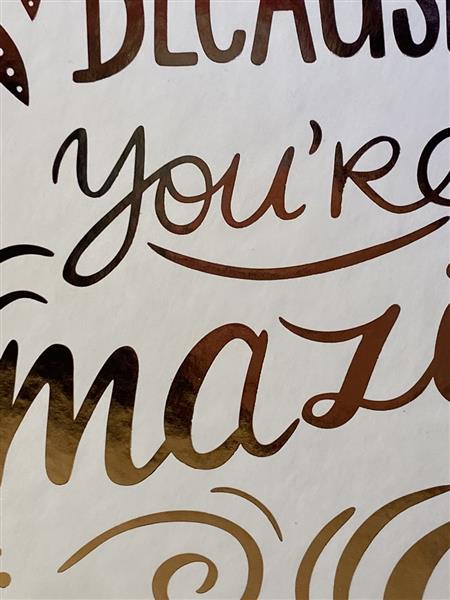 BECAUS
you're
mazi